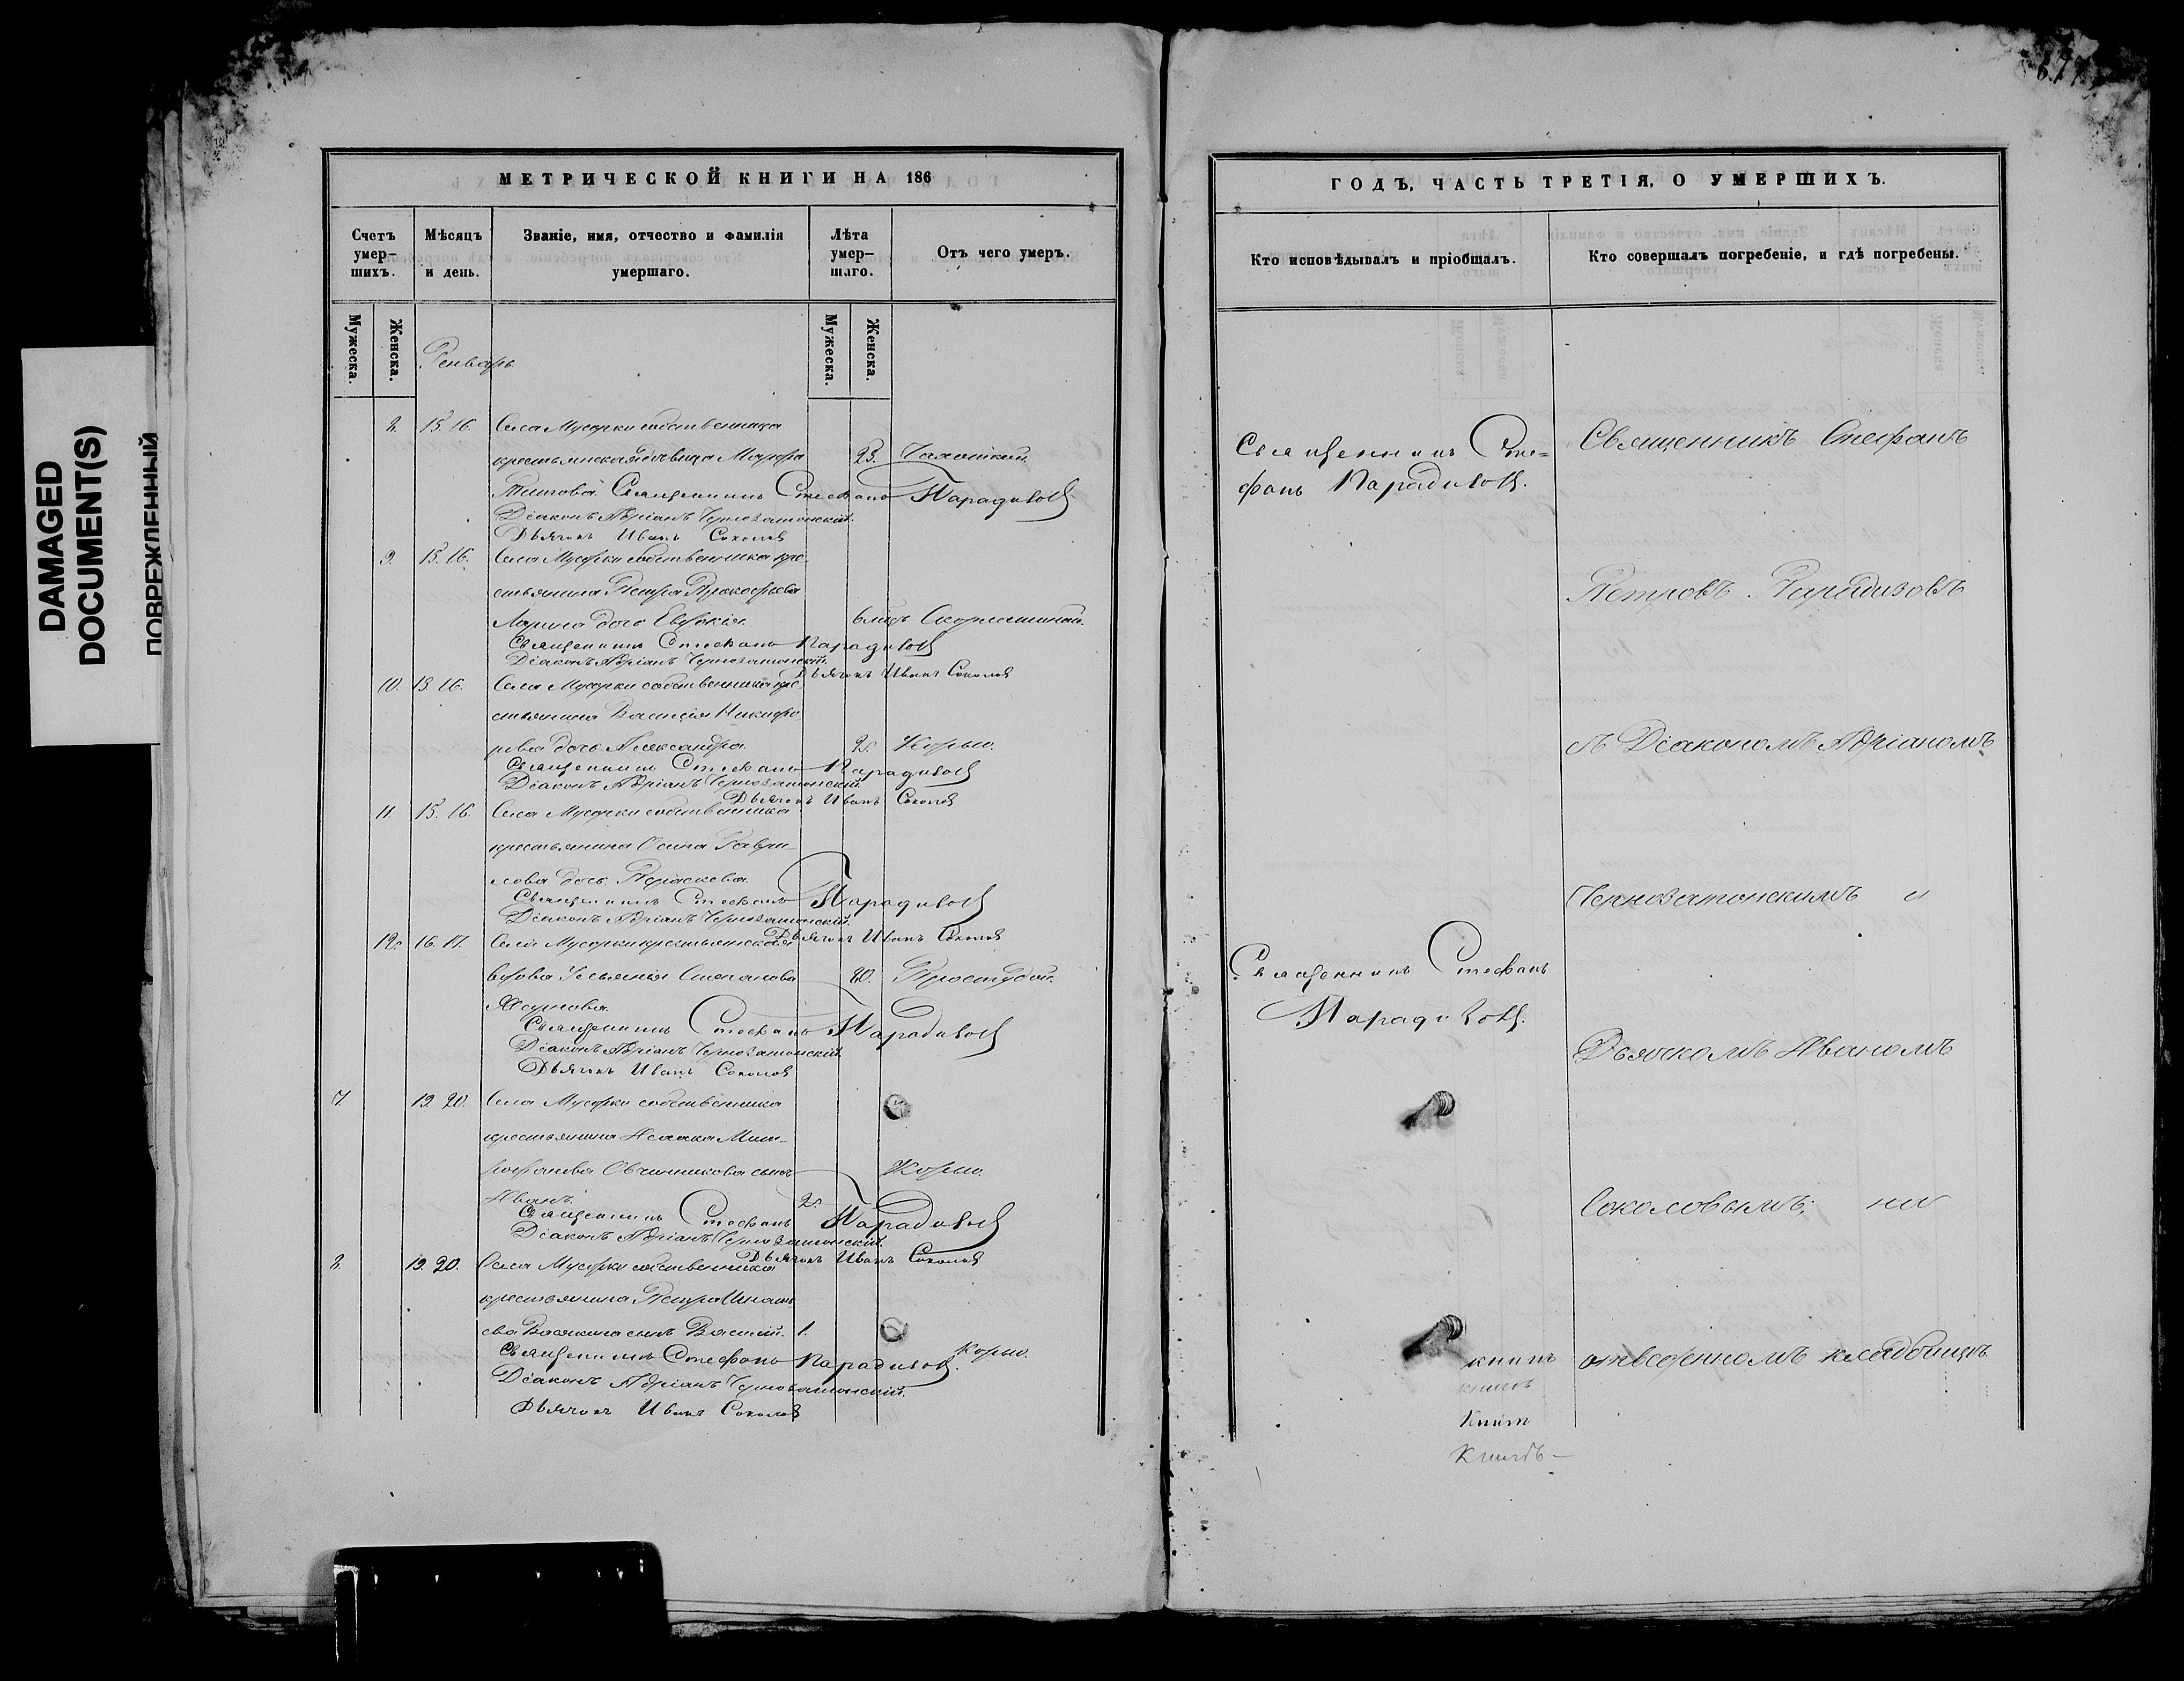 DAMAGED
DOCUMENT(S)
ПОВРЕЖДЕННЫЙ
МЕТРИЧЕСКОЙ КНИГИ НА 186
Счетъ умер-шихъ.
Мѣсяцъ и день.
Званіе, имя, отчество и фамилія умершаго.
Лѣта умер-шаго.
Отъ чего умеръ.
Мужеска.
Женска.
Мужеска.
Женска.
Генварь
8. 15. 16. Села Мусорки собственника
крестьянская вдовица Марфа
Титова Священникъ Стефанъ Парадизовъ
Діаконъ Адріанъ Чернозатонскій.
Дьячокъ Иванъ Соколов
9. 15. 16. Села Мусорки собственника кре-
стьянина Петра Прокофьева
дочь Евдокія. 6 мѣс.
Священникъ Стефанъ Парадизовъ
Діаконъ Адріанъ Чернозатонскій.
Дьячокъ Иванъ Соколов
10. 15. 16. Села Мусорки собственника кре-
стьянина Василія Никифо
рова дочь Александра. 2. Корью.
Священникъ Стефанъ Парадизовъ
Діаконъ Адріанъ Чернозатонскій
Дьячокъ Иванъ Соколов
11. 15. 16. Села Мусорки собственника
крестьянина Осипа Гаври-
лова дочь Параскева.
Священникъ Стефанъ Парадизовъ
Діаконъ Адріанъ Чернозатонскій.
Дьячокъ Иванъ Соколов
12. 16. 17. Села Мусорки крестьянская
вдова Ульянья Степанова 80. Простудой.
Священникъ Стефанъ Парадизовъ
Діаконъ Адріанъ Чернозатонскій
Дьячокъ Иванъ Соколов
7. 19. 20. Села Мусорки собственника
крестьянина Исаака Мит-
рофанова Овчинникова сынъ Корью.
Иванъ. 2.
Священникъ Стефанъ Парадизовъ
Діаконъ Адріанъ Чернозатонскій.
Дьячокъ Иванъ Соколов
8. 19. 20. Села Мусорки собственника
крестьянина Петра Игнать
ева Васякина сынъ Василій. 1.
Корью.
Священникъ Стефанъ Парадизовъ.
Діаконъ Адріанъ Чернозатонскій.
Дьячокъ Иванъ Соколов
ГОДЪ, ЧАСТЬ ТРЕТІЯ, О УМЕРШИХЪ.
Кто исповѣдывалъ и пріобщалъ.
Кто совершалъ погребеніе, и гдѣ погребены.
Священникъ Сте=
фанъ Парадизовъ.
Священникъ Стефанъ
Парадизовъ.
Священникъ Стефанъ
Петровъ Парадизовъ
съ Діакономъ Адріаномъ
Чернозатонскимъ и
Дьячкомъ Иваномъ
Соколовымъ; на
отведенномъ кладбищѣ.